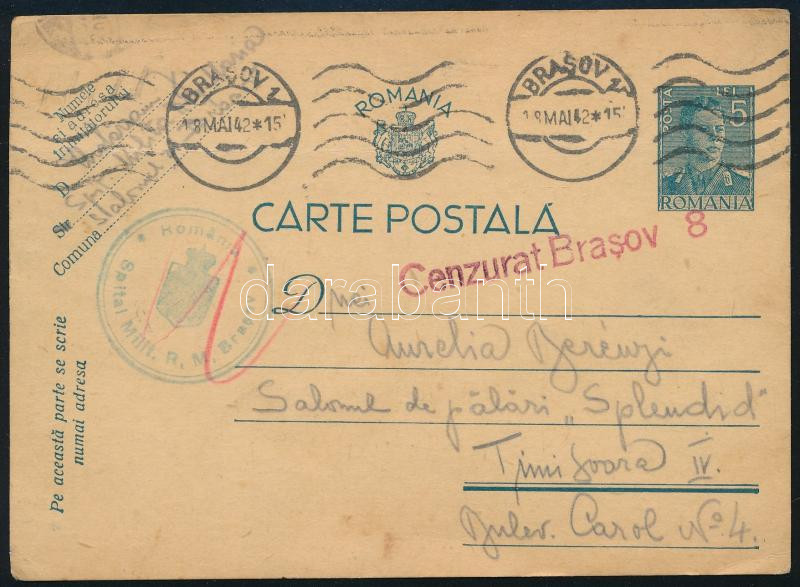 BRAȘOV 2
18 MAI 42 * 15
ROMANIA
BRAȘOV 2
18 MAI 42 * 15
POSTA LEI 5
ROMANIA
Numele
și adresa
trimițătorului
D.
Str.
Comuna
CARTE POSTALĂ
Cenzurat Brașov 8
România
Spital Milit. R. M. Brașov
darabanth
D nei
Aurelia Berenzi
Salonul de pălări „Splendid"
Timișoara IV.
Bulev. Carol No 4.
Pe această parte se scrie
numai adresa